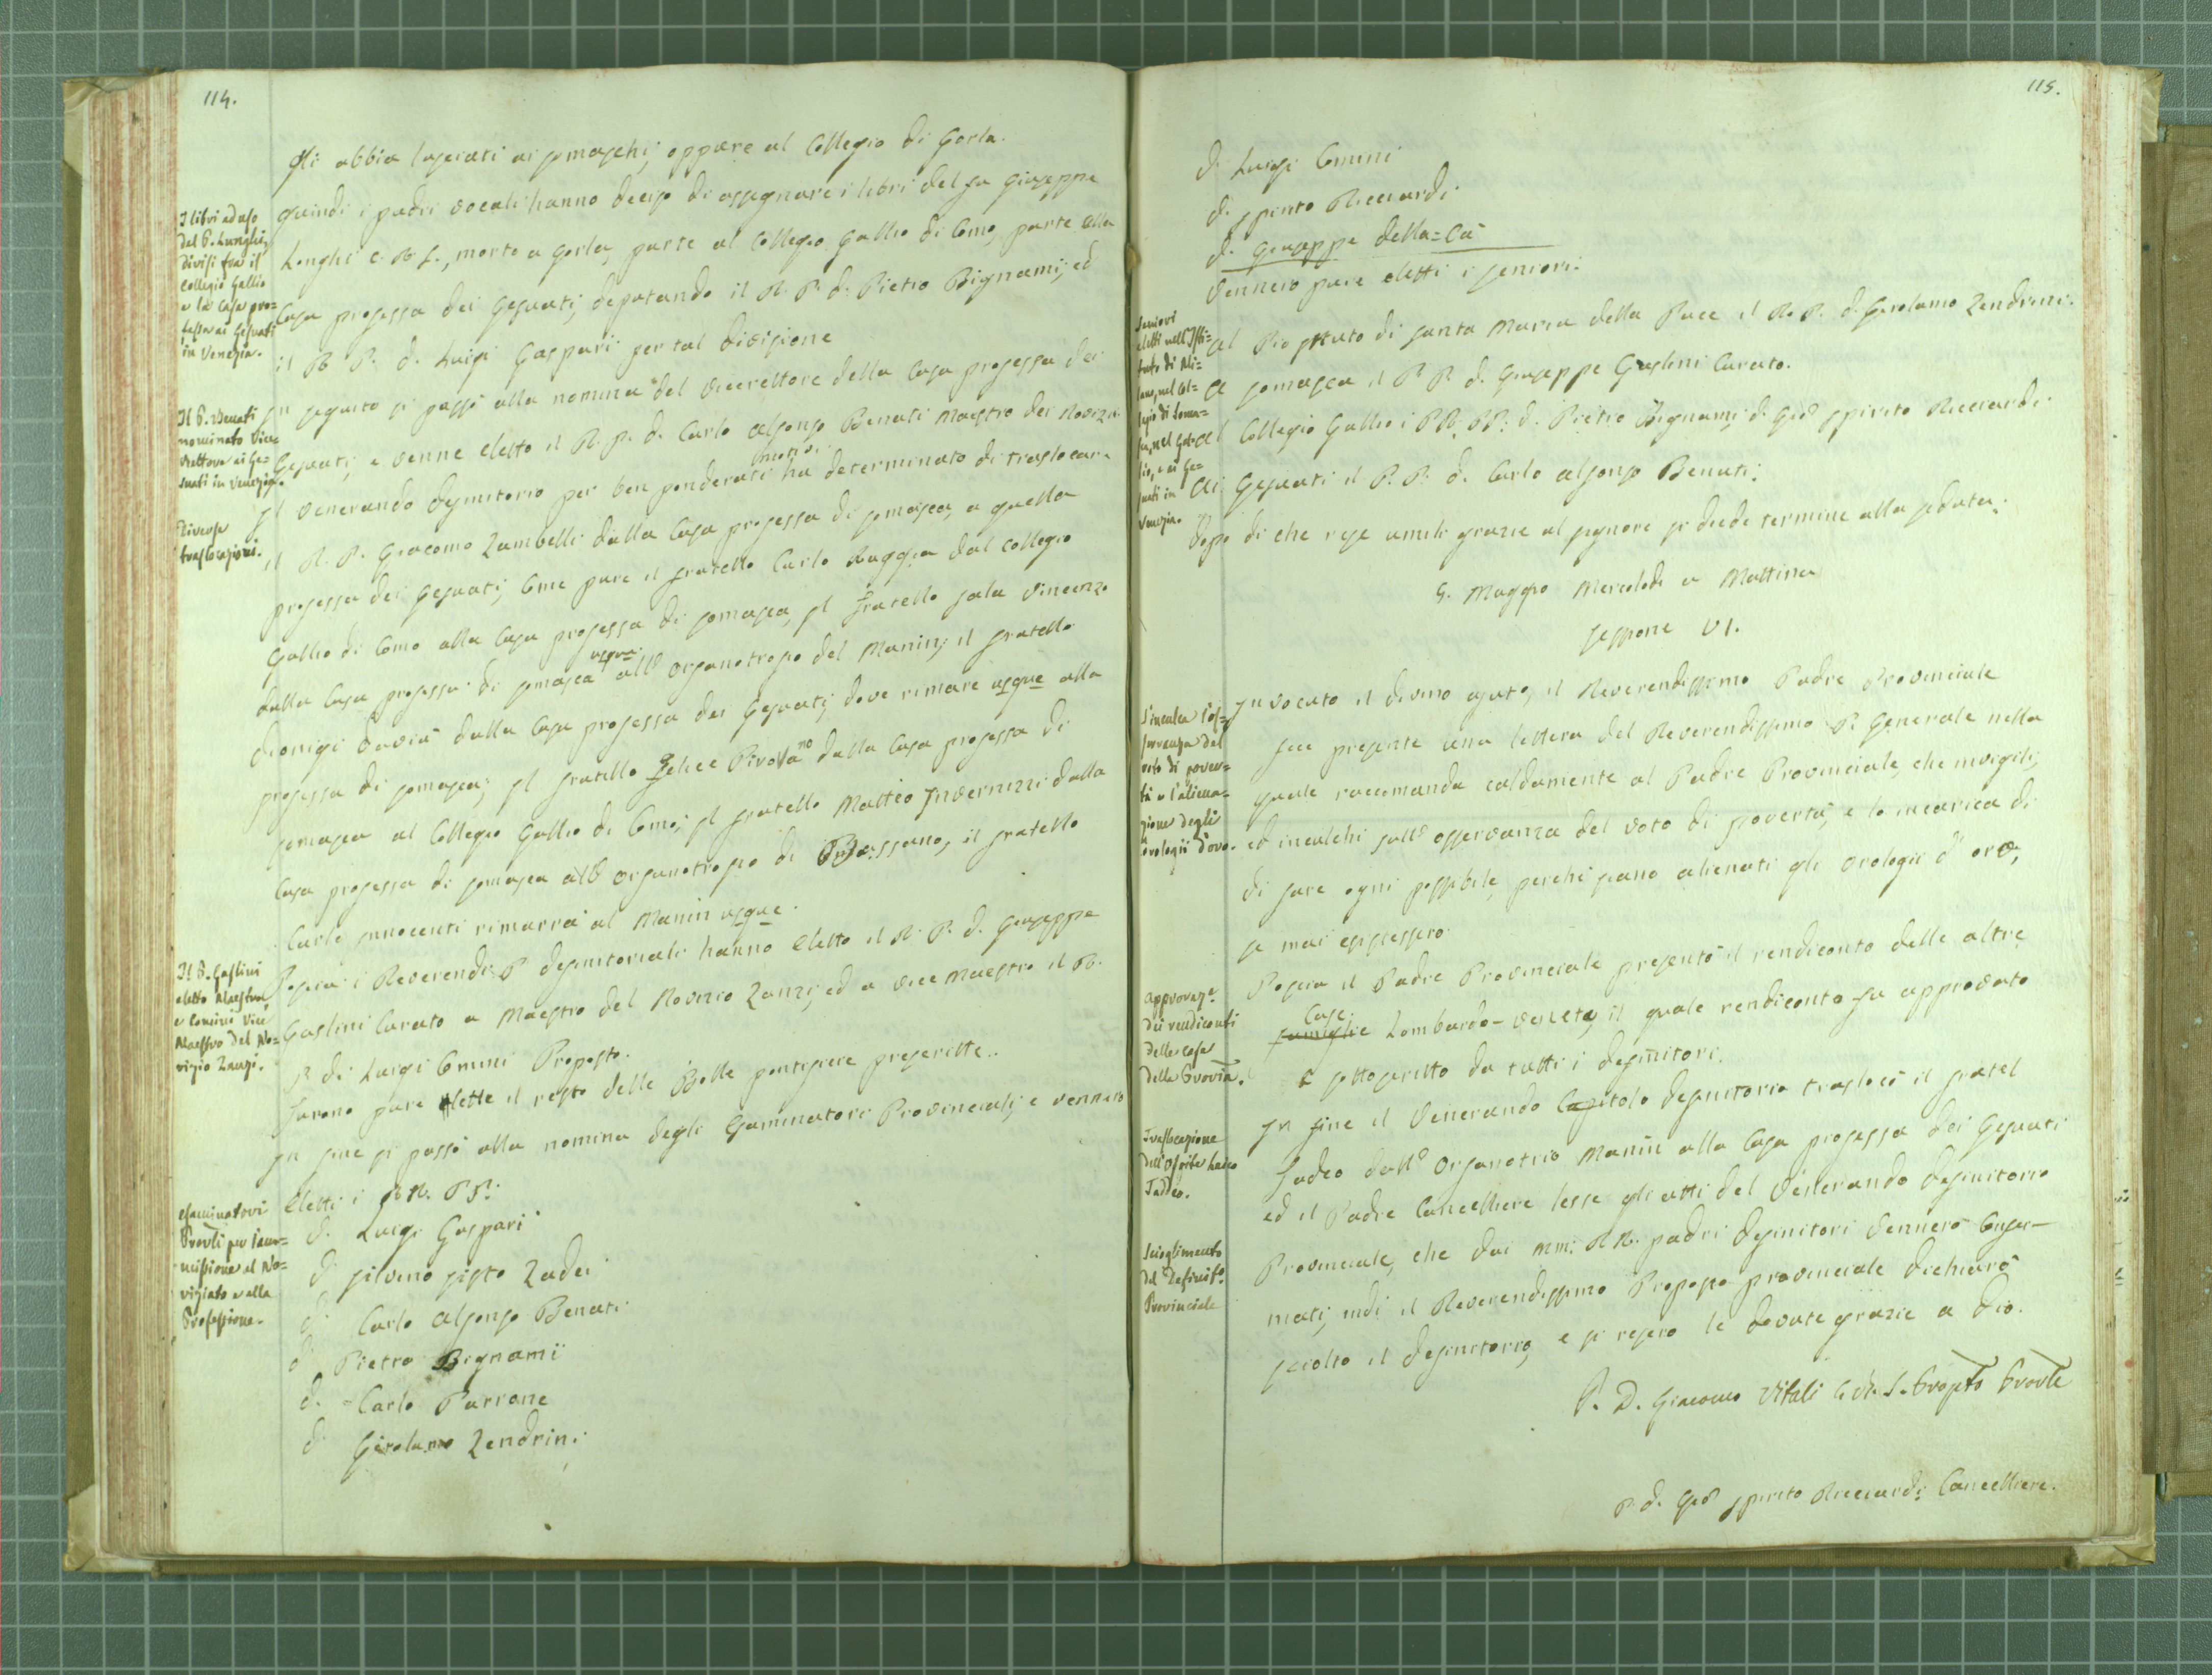 114.
gli abbia lasciati ai somaschi, oppure al Collegio di Gorla.
quindi i padri vocali hanno deciso di assegnare i libri del fu Giuseppe
Longhi C. R. S., morto a Gorla, parte al Collegio Gallio di Como, parte alla
Casa professa dei Gesuati, deputando il R. P. d. Pietro Bignami, ed
il R. P. d. Luigi Gaspari per tal divisione
I libri ad uso
del P. Lunghi,
divisi fra il
Collegio Gallio
e la Casa pro-
fessa ai Gesuati
in Venezia.
In seguito si passò alla nomina del Vicerettore della Casa professa dei
Gesuati, e venne eletto il R. P. d. Carlo Alfonso Benati Maestro dei Novizi.
Il P. Benati
nominato Vice
Rettore ai Ge-
suati in Venezia.
Il Venerando definitorio per ben ponderati motivi ha determinato di traslocare
il R. P. Giacomo Zambelli dalla Casa professa di somasca, a quella
professa dei Gesuati, Come pure il fratello Carlo Ruggia dal Collegio
Gallio di Como alla Casa professa di somasca, Il fratello Sala Vincenzo
dalla Casa professa di somasca usque all' Organotrofio del Manin; il fratello
dionigi Davià dalla Casa professa dei Gesuati, dove rimare usque alla
professa di somasca; Il fratello Felice Pirovano dalla Casa professa di
somasca al Collegio Gallio di Como; Il fratello Matteo Invernizzi dalla
Casa professa di somasca all' Organotrofio di Bassano, il fratello
Carlo Innocenti rimarrà al Manin usque.
Diverse
traslocazioni.
Poscia i Reverendi P definitoriali hanno eletto il R. P. d. Giuseppe
Gaslini Curato a Maestro del Novizio Zanzi, ed a vice Maestro il R.
P. di Luigi Comini Proposto.
Il P. Gaslini
eletto Maestro,
e Comini Vice
Maestro del No-
vizio Zanzi.
Furono pure lette il resto delle Bolle pontificie prescritte.
In fine si passò alla nomina degli Esaminatori Provinciali, e vennero
Eletti i RR. PP:
d. Luigi Gaspari
d. Silvino Sisto Zadei
d. Carlo Alfonso Benati
d. Pietro Bignami
d. Carlo Parrone
d. Girolamo Zendrini
esaminatori
Provli per l'am-
missione al No-
viziato e alla
Professione.
115.
d. Luigi Comini
d. Spirito Ricciardi
d. Giuseppe della=Cà
Vennero pure eletti i seniori:
al Pio Istituto di santa Maria della Pace il R. P. d. Girolamo Zendrini.
A somasca il P. P. d. Giuseppe Gaslini Curato.
Al Collegio Gallio i RR: PP: d. Pietro Bignami, d. Gio Spirito Ricciardi.
Ai Gesuati il P. P. d. Carlo Alfonso Benati.
Seniori
eletti nell'Isti-
tuto di Mi-
lano, nel Col-
legio di Soma-
sca, nel Gal-
lio, e ai Ge-
suati in
Venezia.
Dopo di che rese umili grazie al signore si diede termine alla seduta.
5. Maggio Mercoledì a Mattina
Sessione VI.
Invocato il divino ajuto, il Reverendissimo Padre Provinciale
fece presente una lettera del Reverendissimo P. Generale nella
quale raccomanda caldamente al Padre Provinciale, che invigili,
ed inculchi sull' osservanza del voto di povertà, e lo incarica di
di fare ogni possibile, perchè siano alienati gli orologii d' oro,
se mai esistessero.
S'inculca l'os-
servanza del
voto di pover-
tà e l'aliena-
zione degli
orologii d'oro.
Poscia il Padre Provinciale presentò il rendiconto delle altre
famiglie Case Lombardo-Venete, il quale rendiconto fu approvato
e sottoscritto da tutti i definitori.
Approvaze.
dei rendiconti
delle case
della Provia.
In fine il Venerando Capitolo definitorio traslocò il fratel
Tadeo dall' Organotrio Manin alla Casa professa dei Gesuati
Traslocazione
dell'Ospite laico
Tadeo.
ed il Padre Cancelliere lesse gli atti del Venerando definitorio
Provinciale, che dai MM: RR. padri definitori vennero Confer-
mati, indi il Reverendissimo Proposto provinciale dichiarò
sciolto il definitorio, e si resero le dovute grazie a Dio.
Scioglimento
del Definito.
Provinciale
P. D. Giacomo Vitali C. R. S. Propto Provle
P. d. Gio Spirito Ricciardi Cancelliere.